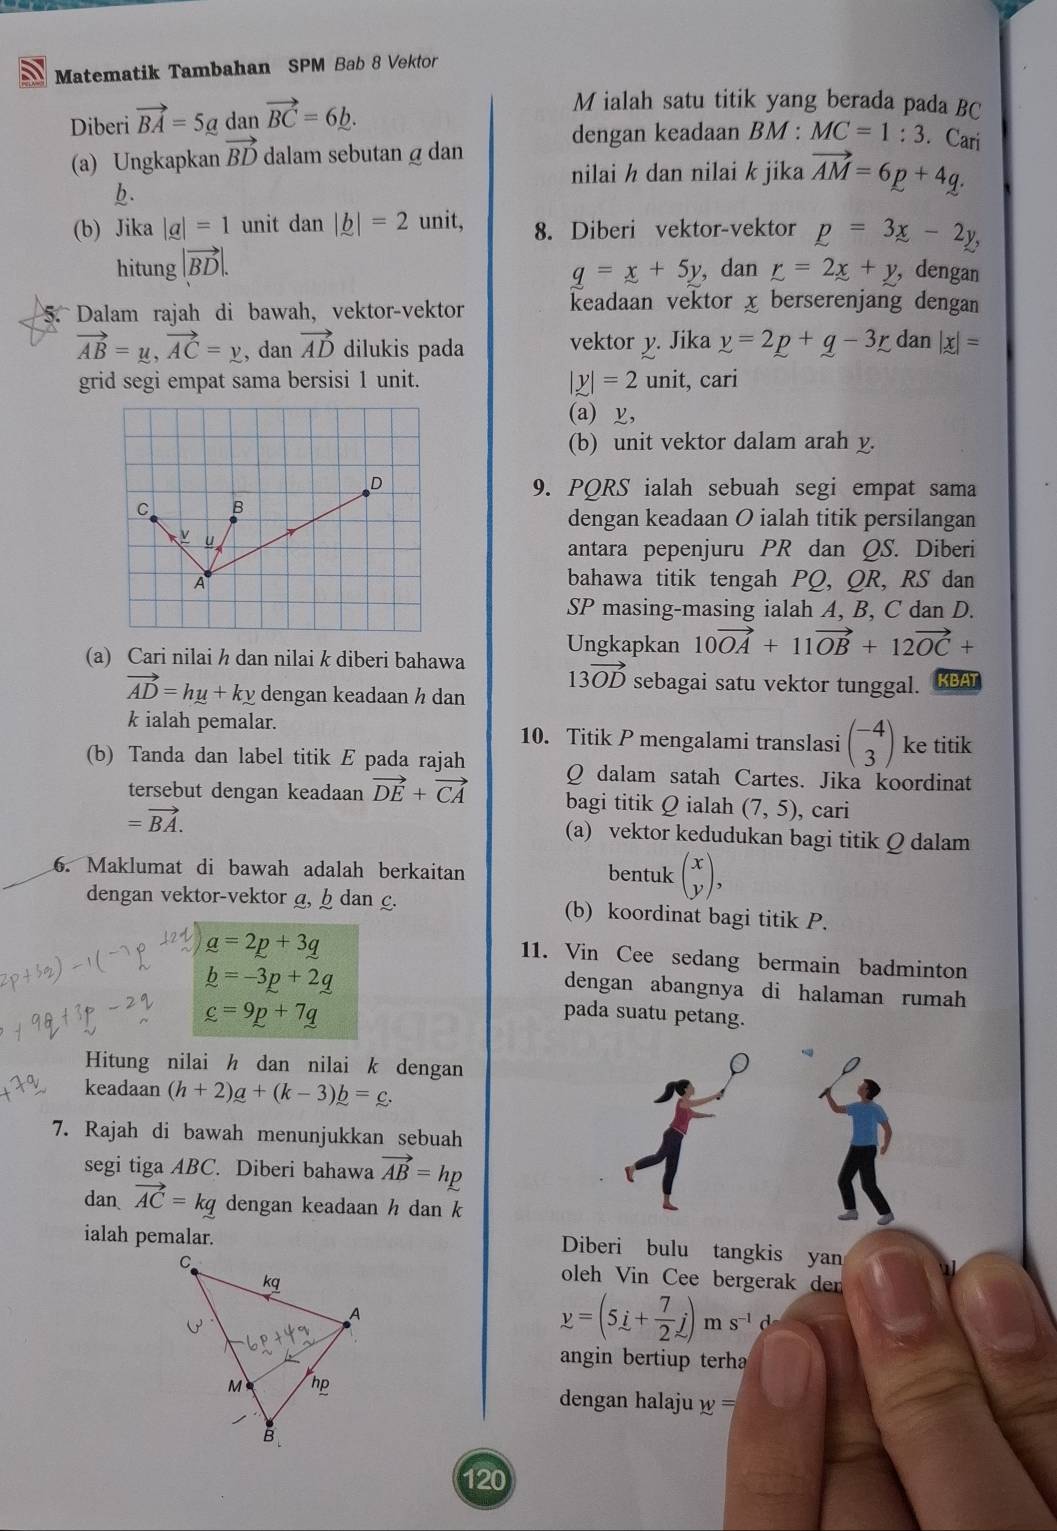 Matematik Tambahan SPM Bab 8 Vektor
Diberi \overrightarrow{BA} = 5a dan \overrightarrow{BC} = 6b.
(a) Ungkapkan \overrightarrow{BD} dalam sebutan a dan
b.
(b) Jika |a| = 1 unit dan |b| = 2 unit,
hitung |\overrightarrow{BD}|.
5. Dalam rajah di bawah, vektor-vektor
\overrightarrow{AB} = u, \overrightarrow{AC} = v, dan \overrightarrow{AD} dilukis pada
grid segi empat sama bersisi 1 unit.
D
C
B
v
u
A
(a) Cari nilai h dan nilai k diberi bahawa
\overrightarrow{AD} = hu + kv dengan keadaan h dan
k ialah pemalar.
(b) Tanda dan label titik E pada rajah
tersebut dengan keadaan \overrightarrow{DE} + \overrightarrow{CA}
= \overrightarrow{BA}.
6. Maklumat di bawah adalah berkaitan
dengan vektor-vektor a, b dan c.
a = 2p + 3q
b = -3p + 2q
c = 9p + 7q
2p+3q) -1(-3p +2q)
+ 9q + 3p - 2q
+7q
Hitung nilai h dan nilai k dengan
keadaan (h + 2)a + (k - 3)b = c.
7. Rajah di bawah menunjukkan sebuah
segi tiga ABC. Diberi bahawa \overrightarrow{AB} = hp
dan \overrightarrow{AC} = kq dengan keadaan h dan k
ialah pemalar.
C
kq
A
3
6p+4q
M
hp
1
B
M ialah satu titik yang berada pada BC
dengan keadaan BM : MC = 1 : 3. Cari
nilai h dan nilai k jika \overrightarrow{AM} = 6p + 4q.
8. Diberi vektor-vektor p = 3x - 2y,
q = x + 5y, dan r = 2x + y, dengan
keadaan vektor x berserenjang dengan
vektor y. Jika v = 2p + q - 3r dan |x| =
|y| = 2 unit, cari
(a) v,
(b) unit vektor dalam arah v.
9. PQRS ialah sebuah segi empat sama
dengan keadaan O ialah titik persilangan
antara pepenjuru PR dan QS. Diberi
bahawa titik tengah PQ, QR, RS dan
SP masing-masing ialah A, B, C dan D.
Ungkapkan 10\overrightarrow{OA} + 11\overrightarrow{OB} + 12\overrightarrow{OC} +
13\overrightarrow{OD} sebagai satu vektor tunggal. KBAT
10. Titik P mengalami translasi \begin{pmatrix} -4 \\ 3 \end{pmatrix} ke titik
Q dalam satah Cartes. Jika koordinat
bagi titik Q ialah (7, 5), cari
(a) vektor kedudukan bagi titik Q dalam
bentuk \begin{pmatrix} x \\ y \end{pmatrix},
(b) koordinat bagi titik P.
11. Vin Cee sedang bermain badminton
dengan abangnya di halaman rumah
pada suatu petang.
Diberi bulu tangkis yan
oleh Vin Cee bergerak den
v = (5i + \frac{7}{2}j) m s⁻¹ d
angin bertiup terha
dengan halaju w =
120